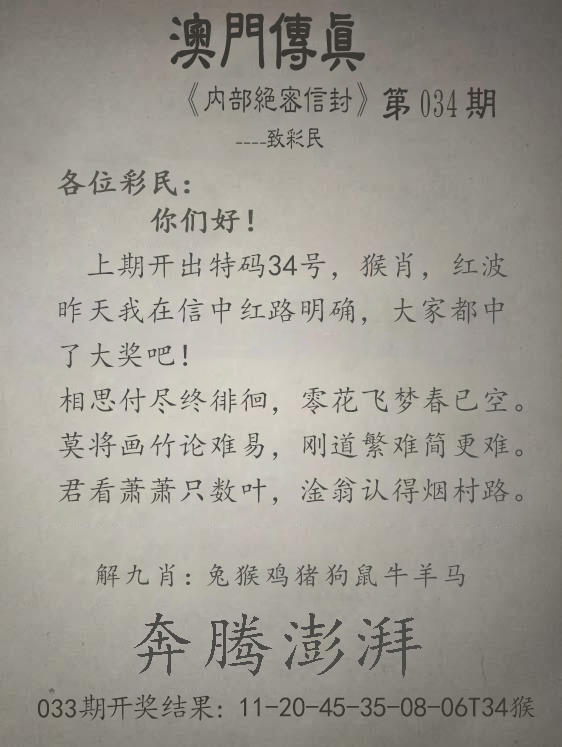 澳門傳眞
《内部絕密信封》第034期
----致彩民
各位彩民：
你们好！
上期开出特码34号，猴肖，红波
昨天我在信中红路明确，大家都中
了大奖吧！
相思付尽终徘徊，零花飞梦春已空。
莫将画竹论难易，刚道繁难简更难。
君看萧萧只数叶，淦翁认得烟村路。
解九肖：兔猴鸡猪狗鼠牛羊马
奔腾澎湃
033期开奖结果：11-20-45-35-08-06T34猴